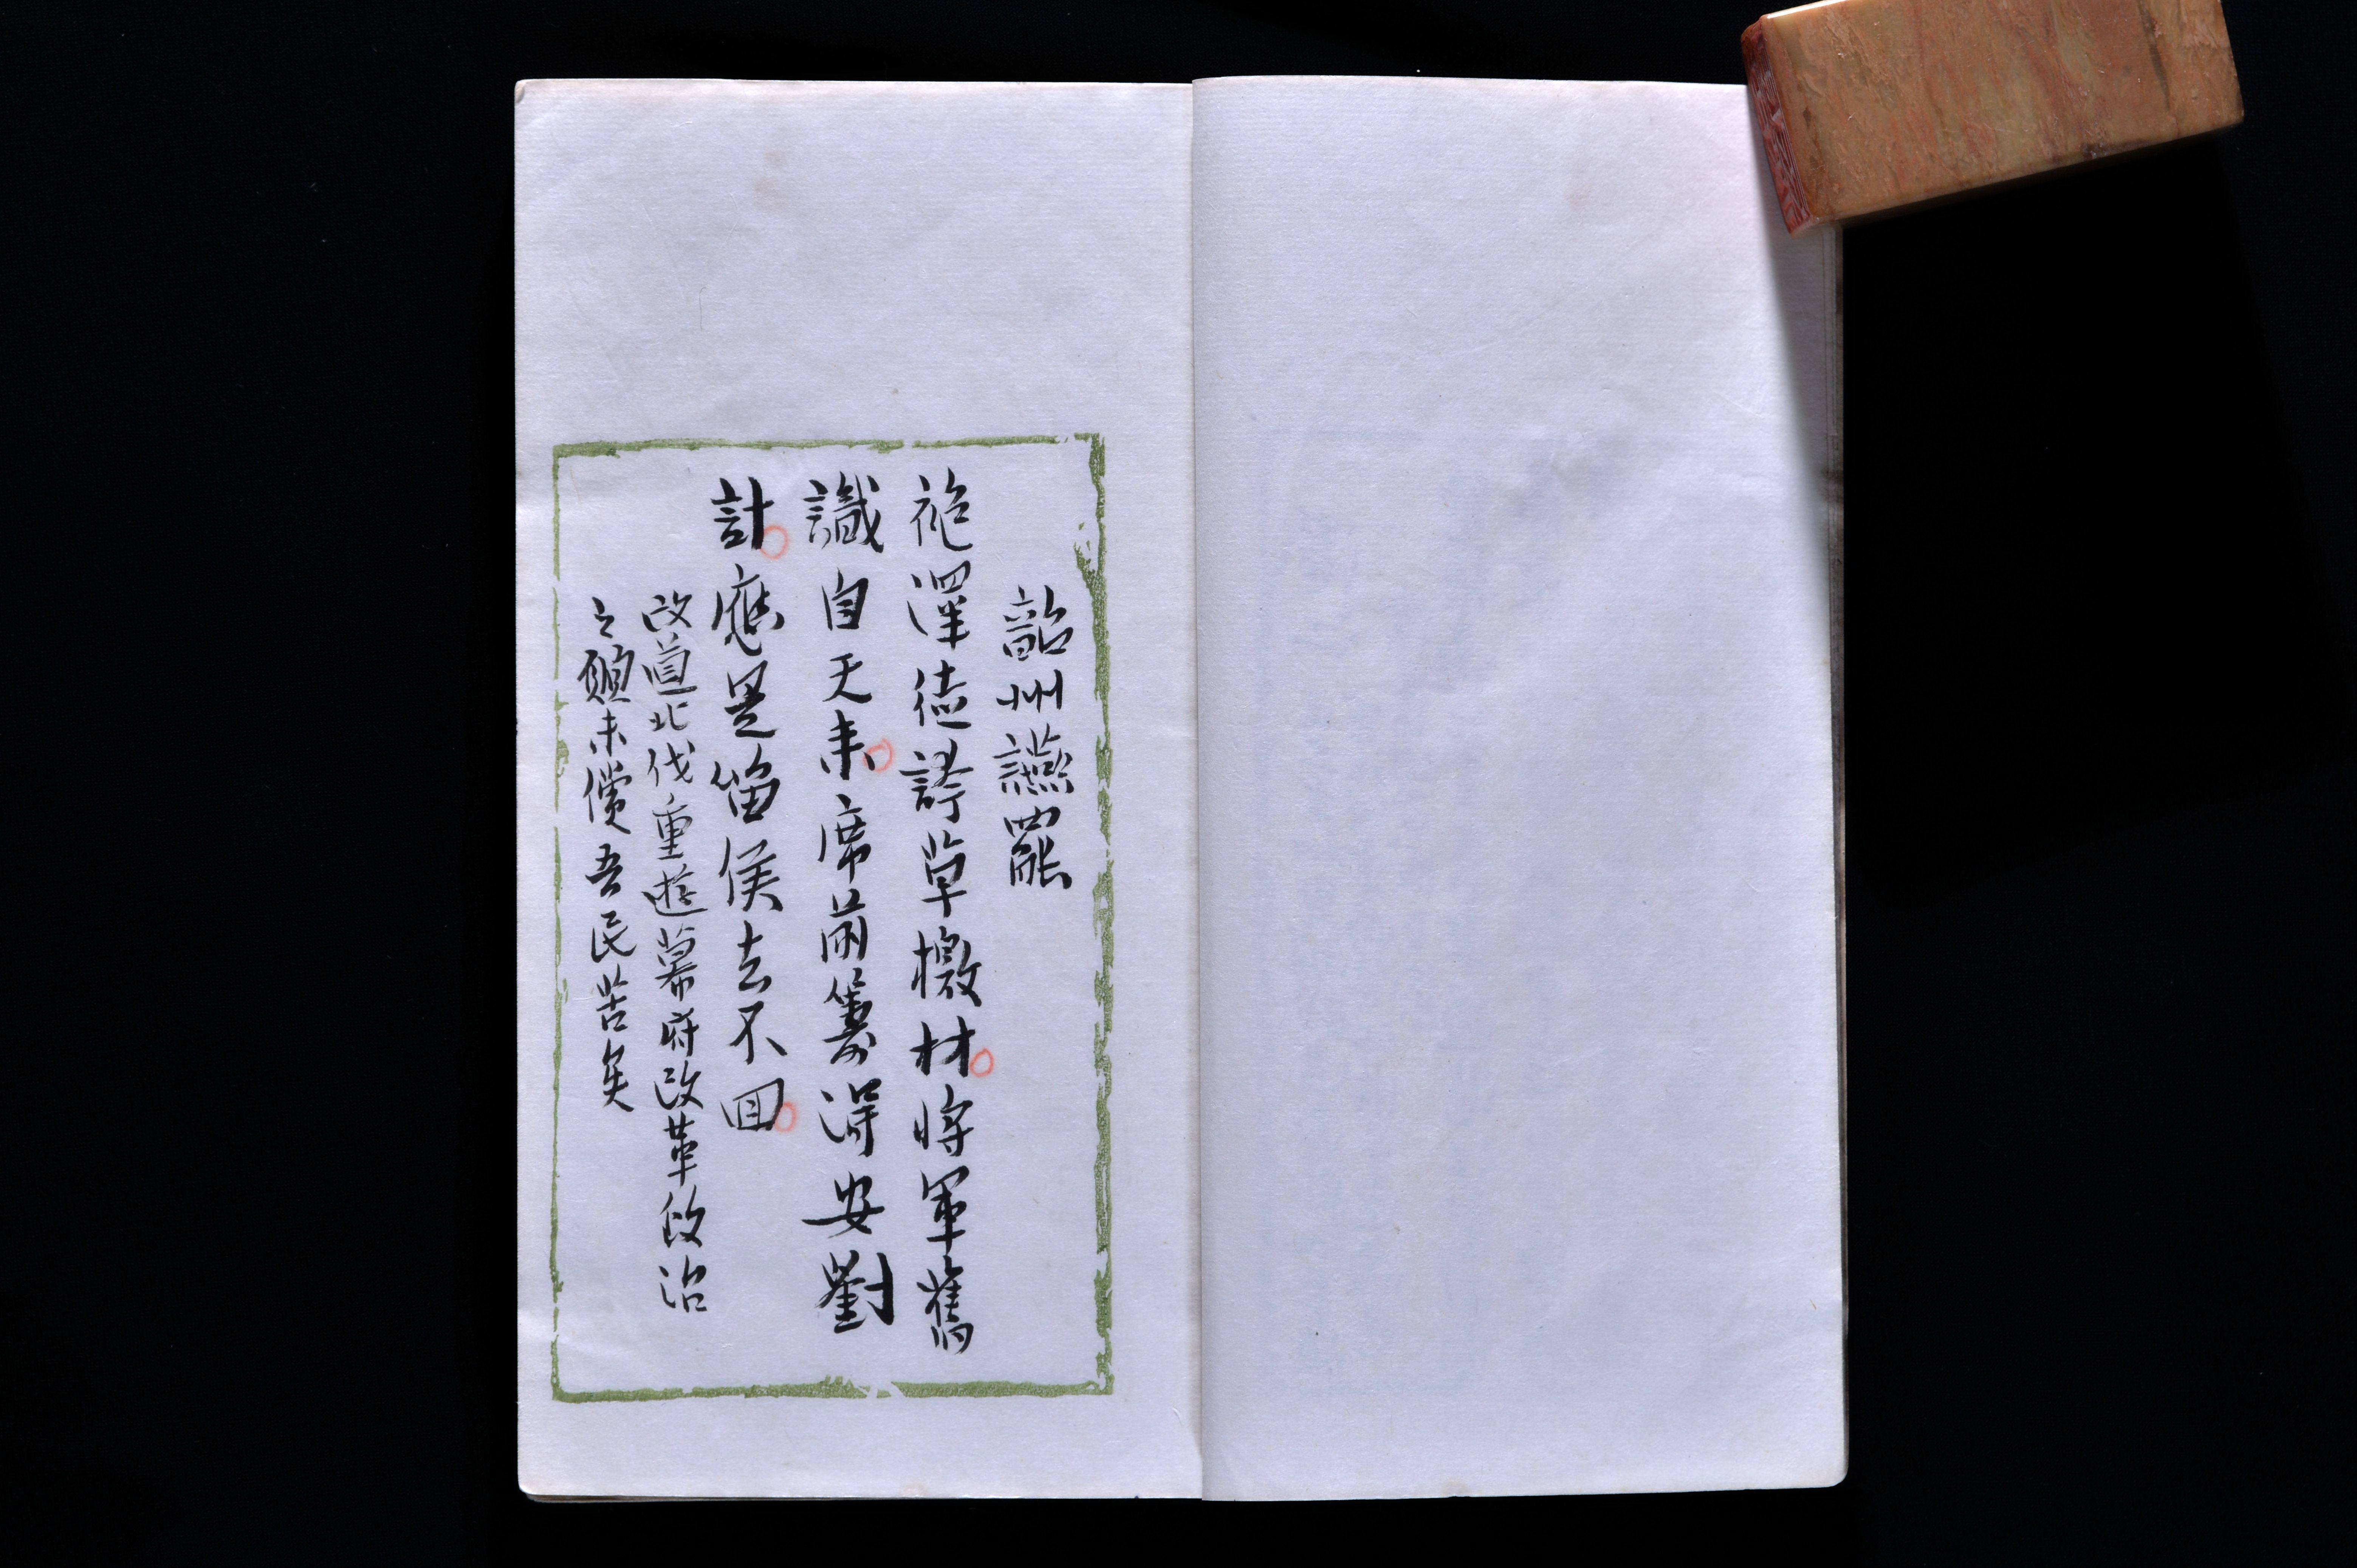 韶州讌罷
袍澤徒誇草檄材將軍舊
識自天來席前籌得安劉
計應是留侯去不回
改道北伐重遊幕府改革政治
之願未償吾民苦矣